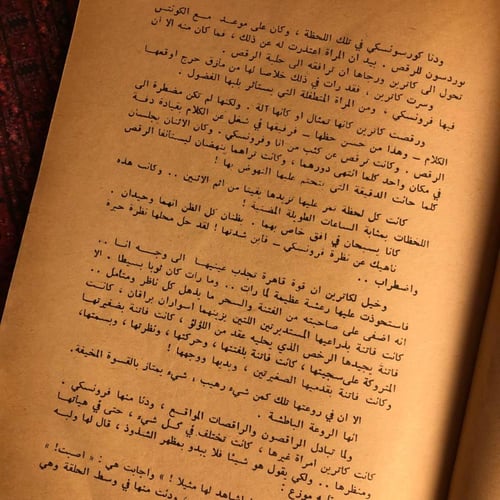 ودنا كورسونسكي في تلك اللحظة ، وكان على موعد مع الكونتس
نوردسون للرقص . بيد ان المرأة اعتذرت له عن ذلك ، فما كان منه الا أن
تحول الى كاترين ورجاها ان ترافقه الى حلبة الرقص .
وسرت كاترين . فقد رأت في ذلك خلاصا لها من مأزق حرج اوقعها
فيها فرونسكي ، ومن المرأة المتطفلة التي يستأثر بلبها الفضول .
ورقصت كاترين كأنها تمثال او كأنها آلة . ولكنها لم تكن مضطرة الى
الكلام – وهذا من حسن حظها – فرفيقها في شغل عن الكلام بقيادة دفة
الرقص . وكانت ترقص عن كثب من انا وفرونسكي . وكان الاثنان يجلسان
في مكان واحد كلما انتهى دورهما ، وكانت تراهما ينهضان ليستأنفا الرقص
كلما حانت الدقيقة التي تتحتم عليها النهوض بها !
كانت كل لحظة تمر عليها تزيدها يقينا من اثم الاثنين .. وكانت هذه
اللحظات بمثابة الساعات الطويلة المضنية !
كانا يسبحان في افق خاص بهما . يظنان كل الظن انهما وحيدان .
ناهيك عن نظرة فرونسكي – فأين شدتها ! لقد حل محلها نظرة حيرة
واضطراب ..
وخيل لكاترين ان قوة قاهرة تجذب عينيها الى وجه انا ..
فاستحوذت عليها رعشة عظيمة لما رأت .. وما رأت كان ثوبا بسيطا . الا
انه اضفى على صاحبته من الفتنة والسحر ما يذهل كل ناظر ومتأمل ..
كانت فاتنة بذراعيها المستديرتين اللتين يزينهما اسواران براقان ، كانت
فاتنة بجيدها الرخص الذي يحليه عقد من اللؤلؤ ، كانت فاتنة بضفيرتها
المتروكة على سجيتها ، كانت فاتنة بلفتتها ، وحركتها ، ونظرتها ، وبسمتها،
وكانت فاتنة بقدميها الصغيرتين ، ويديها ووجهها !
الا ان في روعتها تلك كمن شيء رهيب ، شيء يمتاز بالقسوة المخيفة.
انها الروعة الباطشة .
ولما تبادل الراقصون والراقصات المواقع ، ودنا منها فرونسكي .
كانت كاترين امرأة غيرها ، كانت تختلف في كل شيء ، حتى في هيأتها
ومنظرها .. ولكي يقول هو شيئا فلا يبدو بمظهر الشذوذ ، قال لها وليه
شاهد لها مثيلا ! » واجابت هي : « اصبت! »
ودنت منها في وسط الحلقة وهي